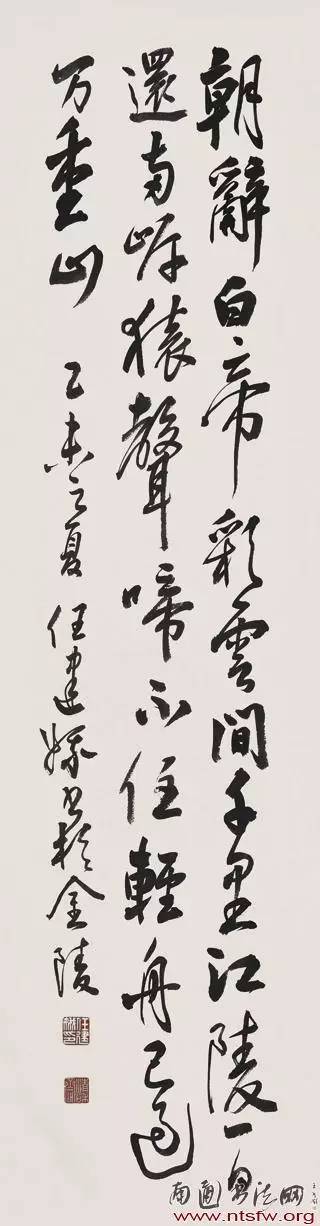 朝辭白帝彩雲間千里江陵一日
還兩岸猿聲啼不住輕舟已過
万重山 乙未之夏 任建書於金陵
南通書法网
www.ntsfw.org